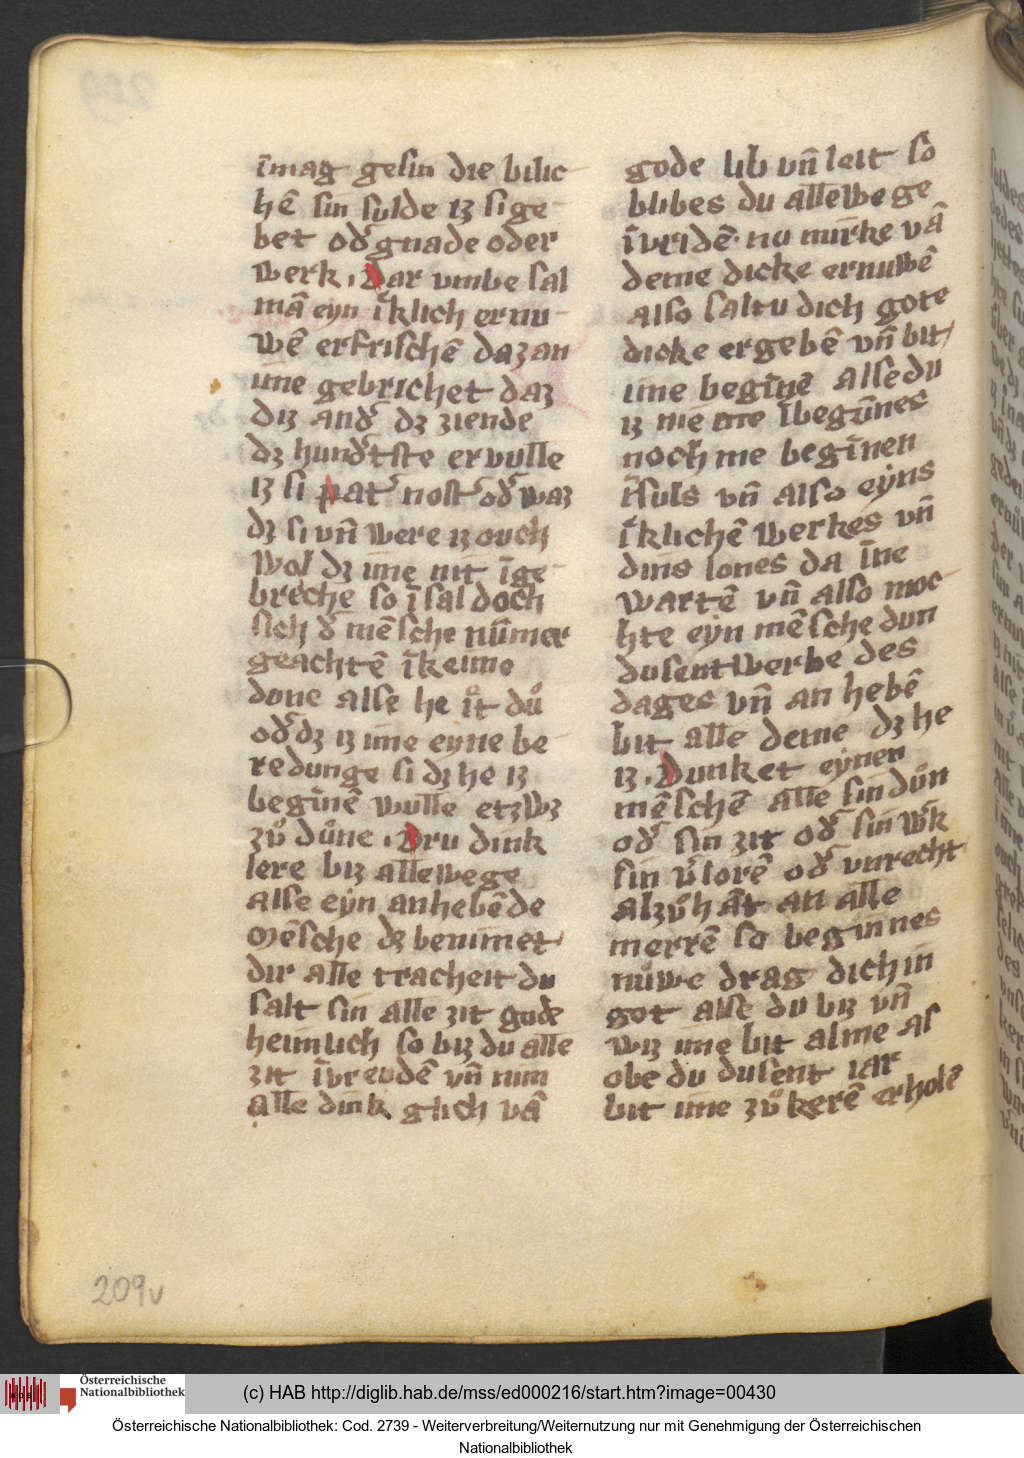 īmag gesin die bilic
hē sin sulde iz si ge
bet od͛ gnade oder
werk . Dar vmbe sal
mā eyn ik͛lich ernu
wē erfrischē daz an
ime gebrichet daz
diz and͛ dz ziende
dz hund͛tste ervulle
iz si pat͛ nost͛ od͛ waz
dz si vn̄ were iz ouch
wol dz ime nit ī ge
breche so ī sal doch
sich d͛ mēsche nūmer
geachtē ī keime
done alse he iͦt duͦ
od͛ dz iz ime eyne be
redunge si dz he iz
begīnē wulle etzwz
zuͦ duͦne . Dru dink
lere biz allewege
alse eyn anhebēde
mēsche dz benimet
dir alle tracheit du
salt sin alle zit gode
heimlich so biz du alle
zit ī vreudē vn̄ nim
alle dink glich vā
gode lib vn̄ leit so
blibes du allewege
ī vridē · nu mirke vā
deme dicke ernuwē
also saltu dich gote
dicke ergebē vn̄ bit
ime begīnē alse du
iz nie me ī begūnes
noch me begīnen
ī suls vn̄ also eyns
ik͛lichē werkes vn̄
dins lones da īne
wartē vn̄ also moc
hte eyn mēsche dun
dusent werbe des
dages vn̄ an hebē
bit alle deme dz he
iz . Dunket eynen
mēschē alle sin duͦn
od͛ sin zit od͛ sin w͛k
sin v͛lorē od͛ vnrecht
alzuͦ hāt an alle
merrē so beginnes
nuͦwe drag dich in
got alse du biz vn̄
wiz ime bit alme als
obe du dusent iar
bit ime zuͦ kerē erholē
209v
Österreichische
Nationalbibliothek
(c) HAB http://diglib.hab.de/mss/ed000216/start.htm?image=00430
Österreichische Nationalbibliothek: Cod. 2739 - Weiterverbreitung/Weiternutzung nur mit Genehmigung der Österreichischen
Nationalbibliothek